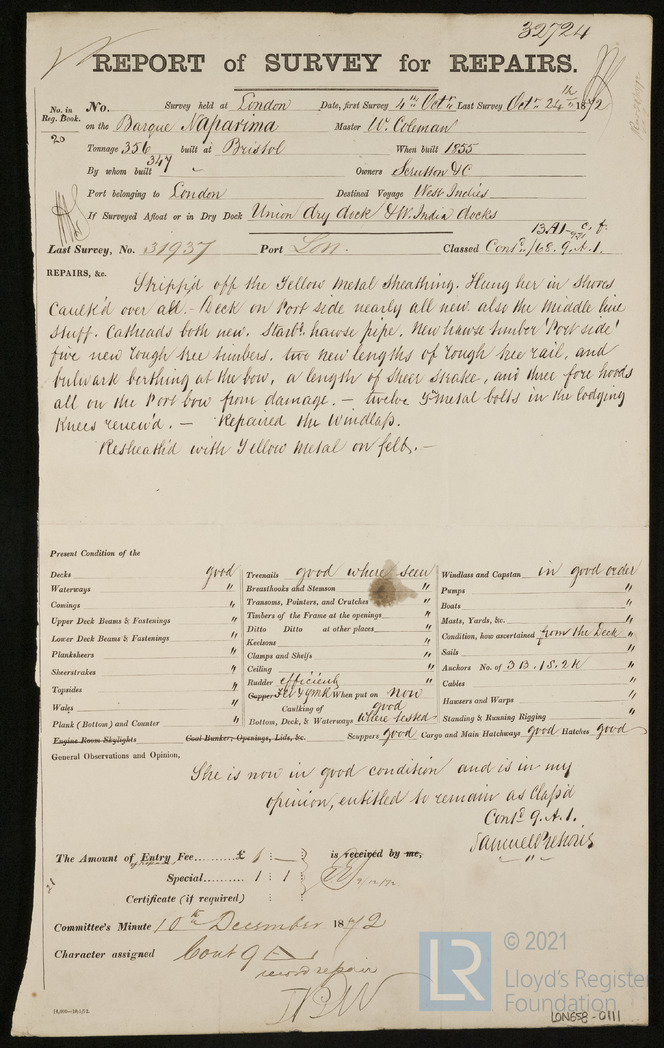 32724
REPORT of SURVEY for REPAIRS.
No. in Reg. Book. No. Survey held at London Date, first Survey 4th Octr. Last Survey Octr. 24th 1872
20 on the Barque Naparima Master W. Coleman
Tonnage 356 built at Bristol When built 1855
347
By whom built " Owners Scrutton & C
Port belonging to London Destined Voyage West Indies
If Surveyed Afloat or in Dry Dock Union dry dock & W. India docks
13A1
Last Survey, No. 31937 Port Lon. Classed Contd./68.9.A.1.
REPAIRS, &c.
Stripp'd off the Yellow Metal Sheathing. Hung her in Shores
Caulk'd over all. - Deck on Port side nearly all new. also the Middle line
stuff. Catheads both new. Starbd. hawse pipe. New hawse timber 'Port side'
five new rough tree timbers. two new lengths of rough tree rail, and
bulwark berthing at the bow, a length of sheer strake, and three fore hoods
all on the Port bow from damage. - twelve Y. metal bolts in the lodging
Knees renew'd. - Repaired the Windlass.
Resheath'd with Yellow Metal on felt. -
Present Condition of the
Decks good
Waterways "
Comings "
Upper Deck Beams & Fastenings "
Lower Deck Beams & Fastenings "
Planksheers "
Sheerstrakes "
Topsides "
Wales "
Plank (Bottom) and Counter "
Engine Room Skylights
Treenails good where seen
Breasthooks and Stemson "
Transoms, Pointers, and Crutches "
Timbers of the Frame at the openings "
Ditto Ditto at other places "
Keelsons "
Clamps and Shelfs "
Ceiling "
Rudder efficient
Copper F & Y M R When put on now
Caulking of good
Bottom, Deck, & Waterways where tested
Coal Bunker, Openings, Lids, &c. Scuppers good Cargo and Main Hatchways good Hatches good
Windlass and Capstan in good order
Pumps "
Boats "
Masts, Yards, &c. "
Condition, how ascertained from the Deck "
Sails "
Anchors No. of 3B.1S.2K "
Cables "
Hawsers and Warps "
Standing & Running Rigging "
General Observations and Opinion,
She is now in good condition and is in my
opinion, entitled to remain as Class'd
Contd. 9.A.1.
Samuel Pretious
The Amount of Entry Fee......... £ 1 : — : is received by me,
of Repairs
Special......... 1 : 1 :
Certificate (if required) :
21
Committee's Minute 10th December 1872
Character assigned Cont 9 A
record repair
14,000—10/1/72.
LR
© 2021
Lloyd's Register
Foundation
LON658-0111